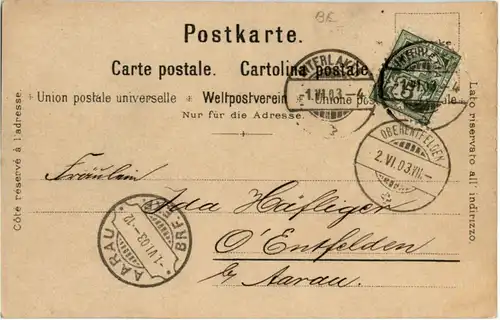 BE
Postkarte.
Carte postale. Cartolina postale.
Union postale universelle * Weltpostverein * Unione postale universale
Nur für die Adresse.
Côté réservé à l'adresse.
Lato riservato all' indirizzo.
INTERLAKEN
-1.VI.03.-4
INTERLAKEN
OBERENTFELDEN
2.VI.03.VII.-
Fräulein
Ida Häfliger
O'Entfelden
b/ Aarau.
AARAU BRF.EXP.
-1.VI.03.-12